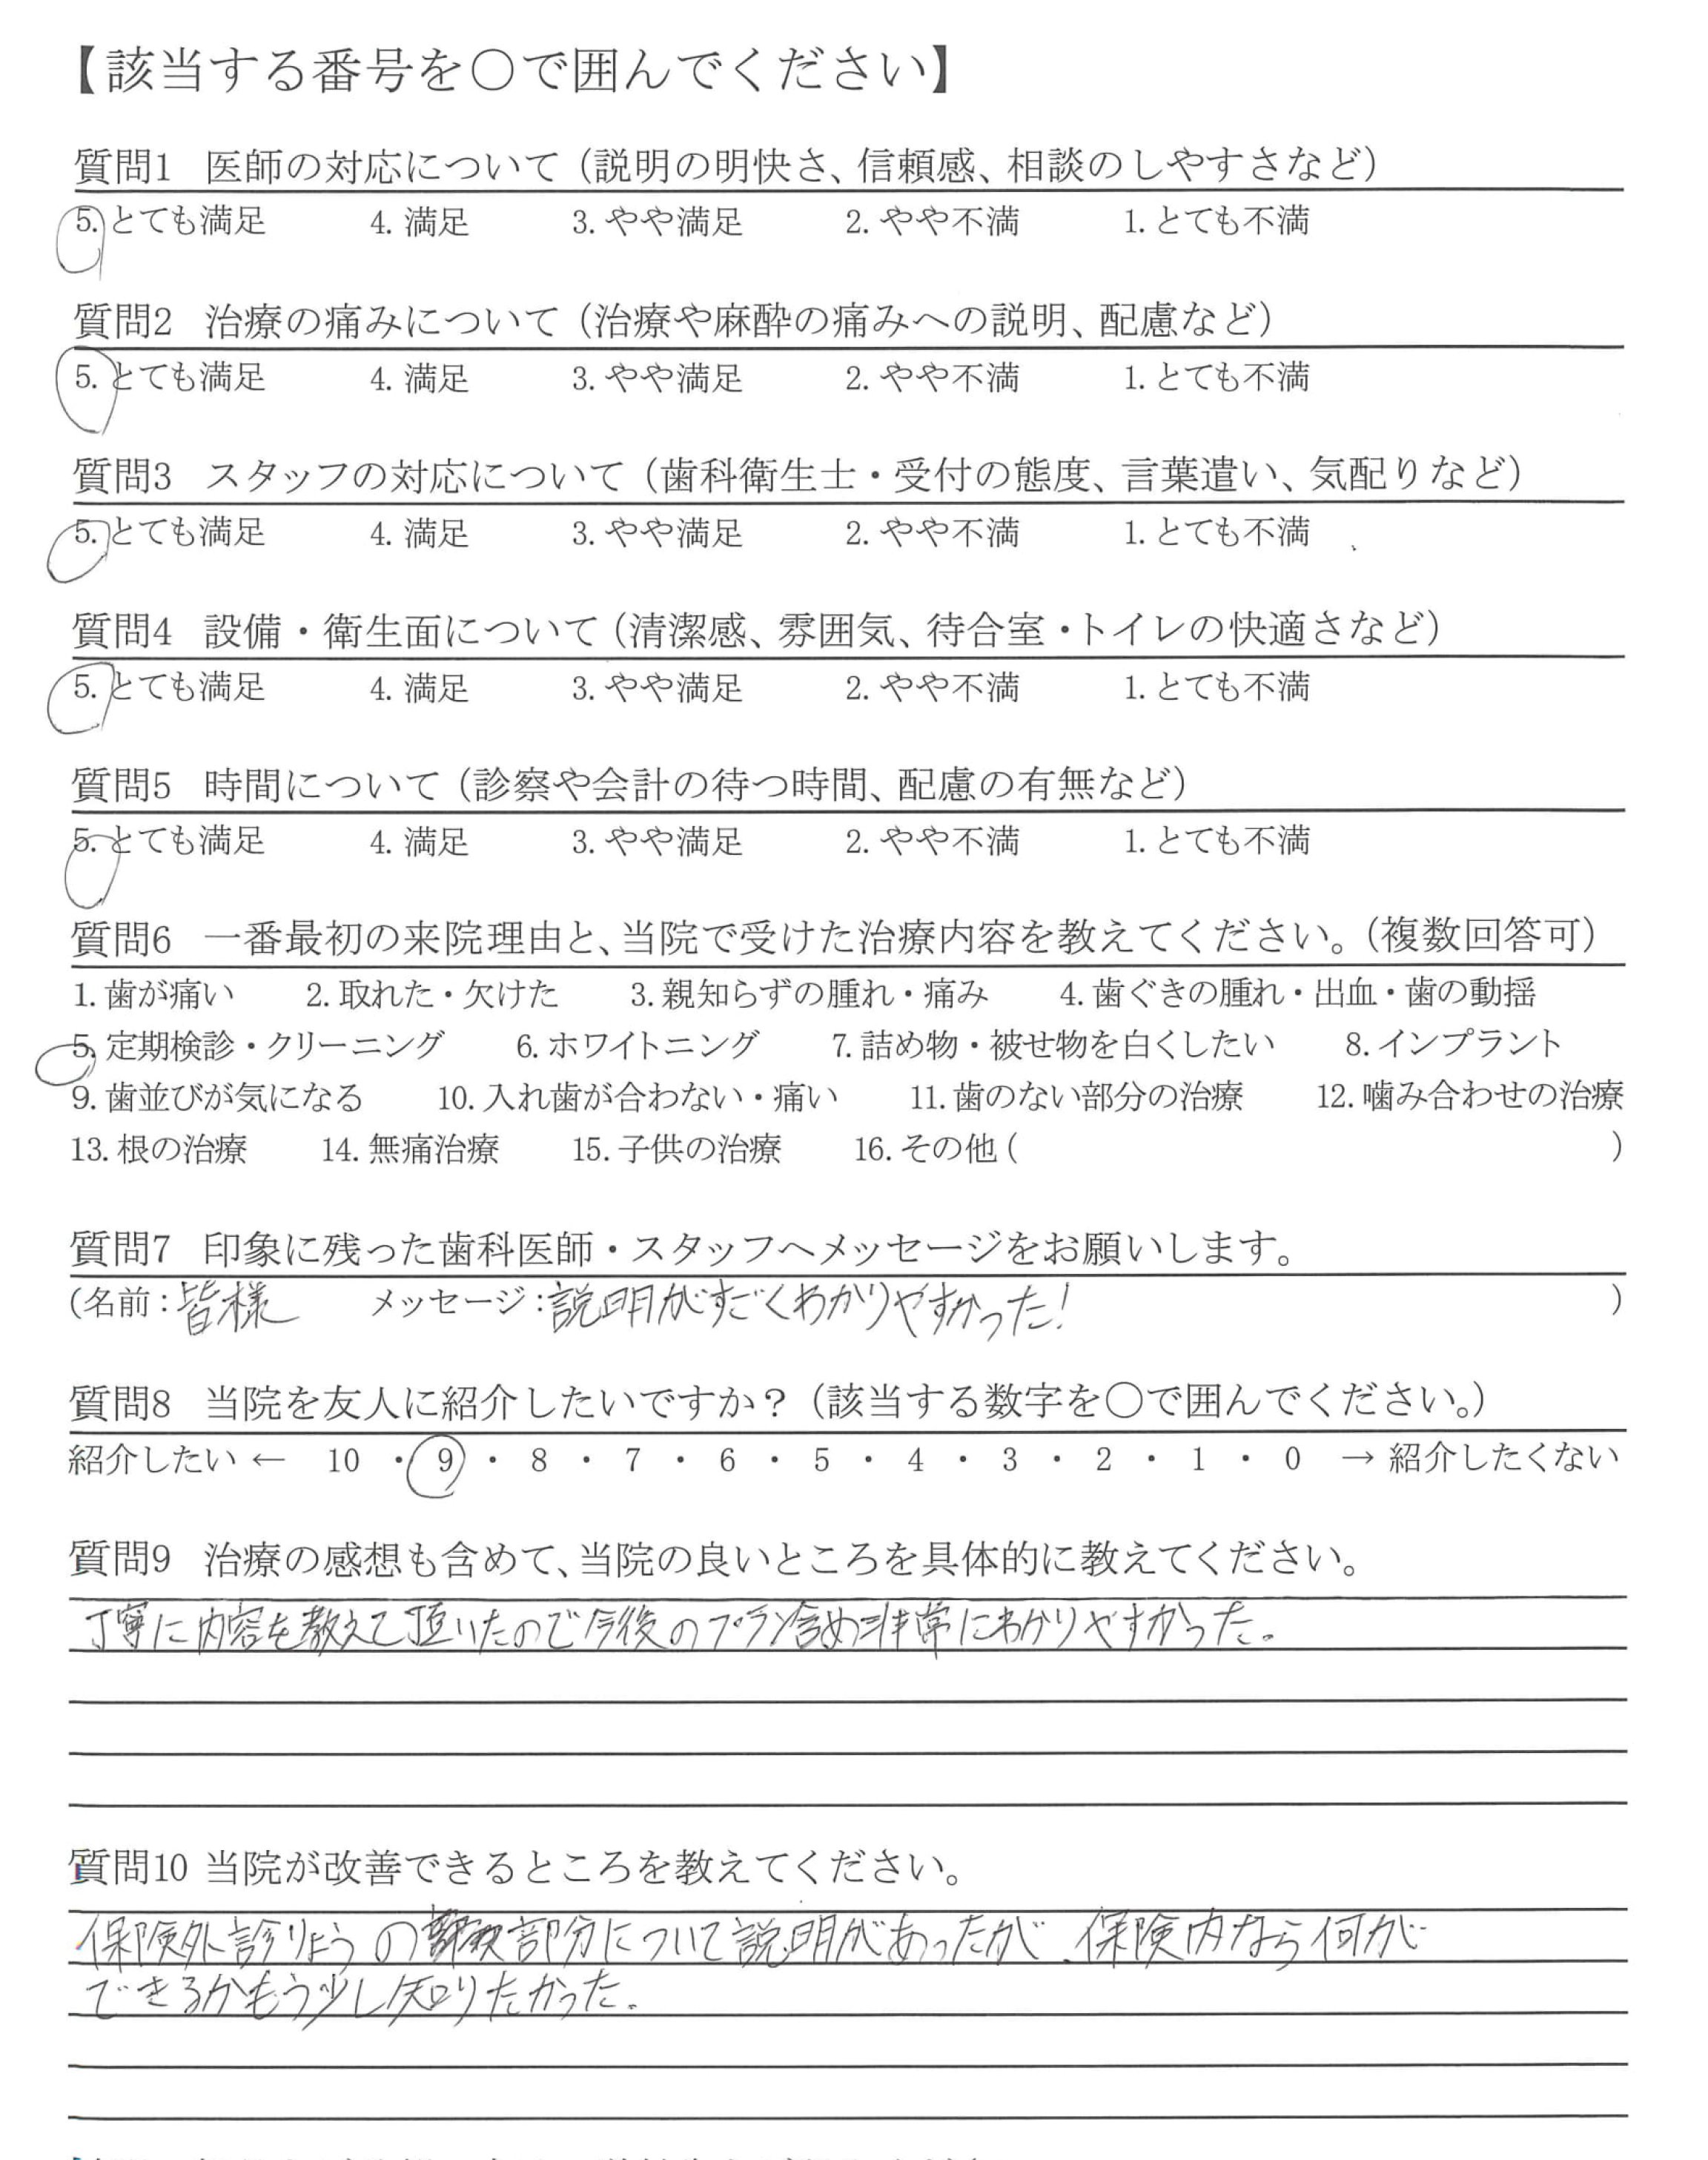 【該当する番号を〇で囲んでください】
質問1 医師の対応について（説明の明快さ、信頼感、相談のしやすさなど）
5. とても満足 4. 満足 3. やや満足 2. やや不満 1. とても不満
質問2 治療の痛みについて（治療や麻酔の痛みへの説明、配慮など）
5. とても満足 4. 満足 3. やや満足 2. やや不満 1. とても不満
質問3 スタッフの対応について（歯科衛生士・受付の態度、言葉遣い、気配りなど）
5. とても満足 4. 満足 3. やや満足 2. やや不満 1. とても不満
質問4 設備・衛生面について（清潔感、雰囲気、待合室・トイレの快適さなど）
5. とても満足 4. 満足 3. やや満足 2. やや不満 1. とても不満
質問5 時間について（診察や会計の待つ時間、配慮の有無など）
5. とても満足 4. 満足 3. やや満足 2. やや不満 1. とても不満
質問6 一番最初の来院理由と、当院で受けた治療内容を教えてください。（複数回答可）
1. 歯が痛い 2. 取れた・欠けた 3. 親知らずの腫れ・痛み 4. 歯ぐきの腫れ・出血・歯の動揺
5. 定期検診・クリーニング 6. ホワイトニング 7. 詰め物・被せ物を白くしたい 8. インプラント
9. 歯並びが気になる 10. 入れ歯が合わない・痛い 11. 歯のない部分の治療 12. 噛み合わせの治療
13. 根の治療 14. 無痛治療 15. 子供の治療 16. その他（ ）
質問7 印象に残った歯科医師・スタッフへメッセージをお願いします。
（名前：皆様 メッセージ：説明がすごくわかりやすかった！ ）
質問8 当院を友人に紹介したいですか？（該当する数字を〇で囲んでください。）
紹介したい ← 10 ・ 9 ・ 8 ・ 7 ・ 6 ・ 5 ・ 4 ・ 3 ・ 2 ・ 1 ・ 0 → 紹介したくない
質問9 治療の感想も含めて、当院の良いところを具体的に教えてください。
丁寧に内容を教えて頂いたので今後のプラン含め非常にわかりやすかった。
質問10 当院が改善できるところを教えてください。
保険外診りょうの部分について説明があったが、保険内なら何が
できるかもう少し知りたかった。